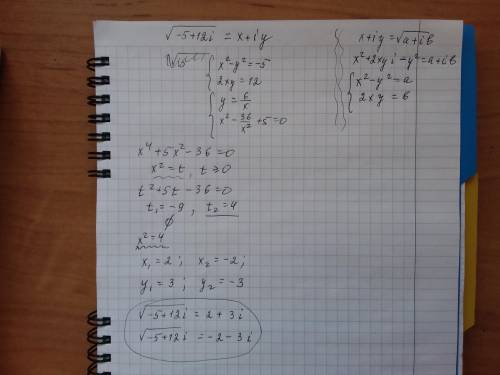 √-5+12i = x+iy
{ x²-y²=-5
2xy=12
{ y = 6/x
x² - 36/x² + 5=0
x⁴+5x²-36=0
x²=t, t≥0
t²+5t-36=0
t₁=-9, t₂=4
∅
x²=4
x₁=2; x₂=-2;
y₁=3; y₂=-3
√-5+12i = 2+3i
√-5+12i = -2-3i
x+iy=√a+ib
x²+2xyi-y²=a+ib
{ x²-y²=a
2xy=b